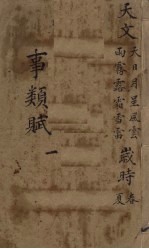 天文 天日月星風雲
雨霧露霜雪雷
歲時 春
夏
事類賦
一